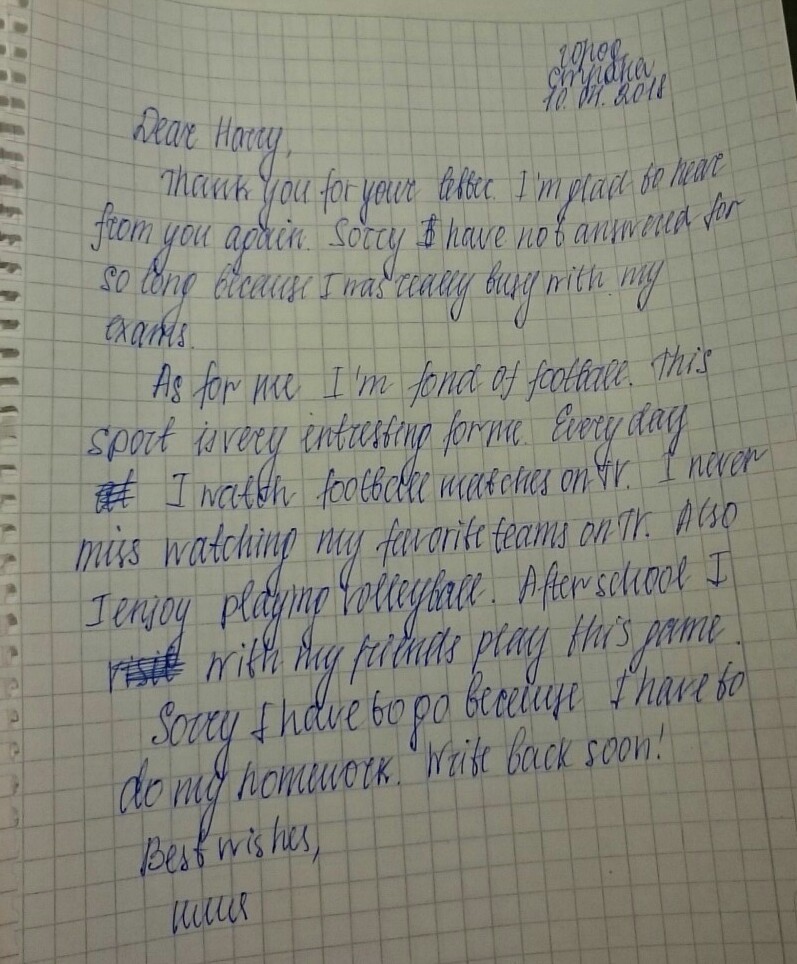 город
страна
10.04.2018
Dear Harry,
Thank you for your letter. I'm glad to hear
from you again. Sorry I have not answered for
so long because I was really busy with my
exams.
As for me I'm fond of football. This
sport is very intresting for me. Every day
I watch football matches on TV. I never
miss watching my favorite teams on TV. Also
I enjoy playing volleyball. After school I
with my friends play this game.
Sorry I have to go because I have to
do my homework. Write back soon!
Best wishes,
имя